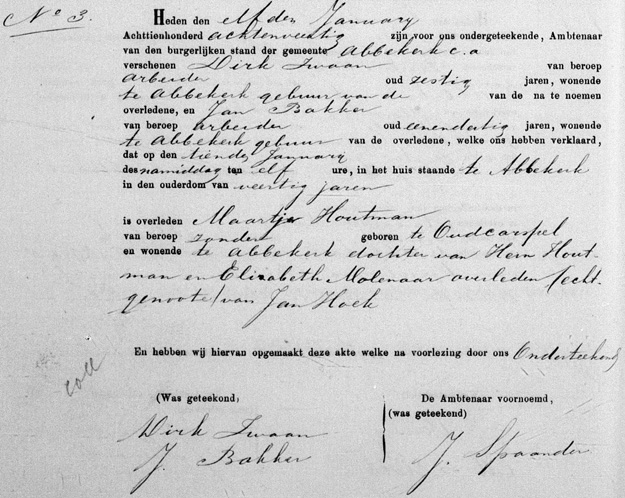 No 3.
Heden den elfden January
Achttienhonderd achtenveertig zijn voor ons ondergeteekende, Ambtenaar
van den burgerlijken stand der gemeente Abbekerk c.a
verschenen Dirk Zwaan van beroep
arbeider oud zestig jaren, wonende
te Abbekerk gebuur van de van de na te noemen
overledene, en Jan Bakker
van beroep arbeider oud eenendertig jaren, wonende
te Abbekerk gebuur van de overledene, welke ons hebben verklaard,
dat op den tienden January
des namiddag ten elf ure, in het huis staande te Abbekerk
in den ouderdom van veertig jaren
is overleden Maartje Houtman
van beroep zonder geboren te Oudcarspel
en wonende te Abbekerk dochter van Hein Hout-
man en Elizabeth Molenaar overleden (echt-
genoote) van Jan Hoek
En hebben wij hiervan opgemaakt deze akte welke na voorlezing door ons Onderteekend
coll
(Was geteekend) De Ambtenaar voornoemd,
(was geteekend)
Dirk Zwaan
J. Bakker J. Spaander